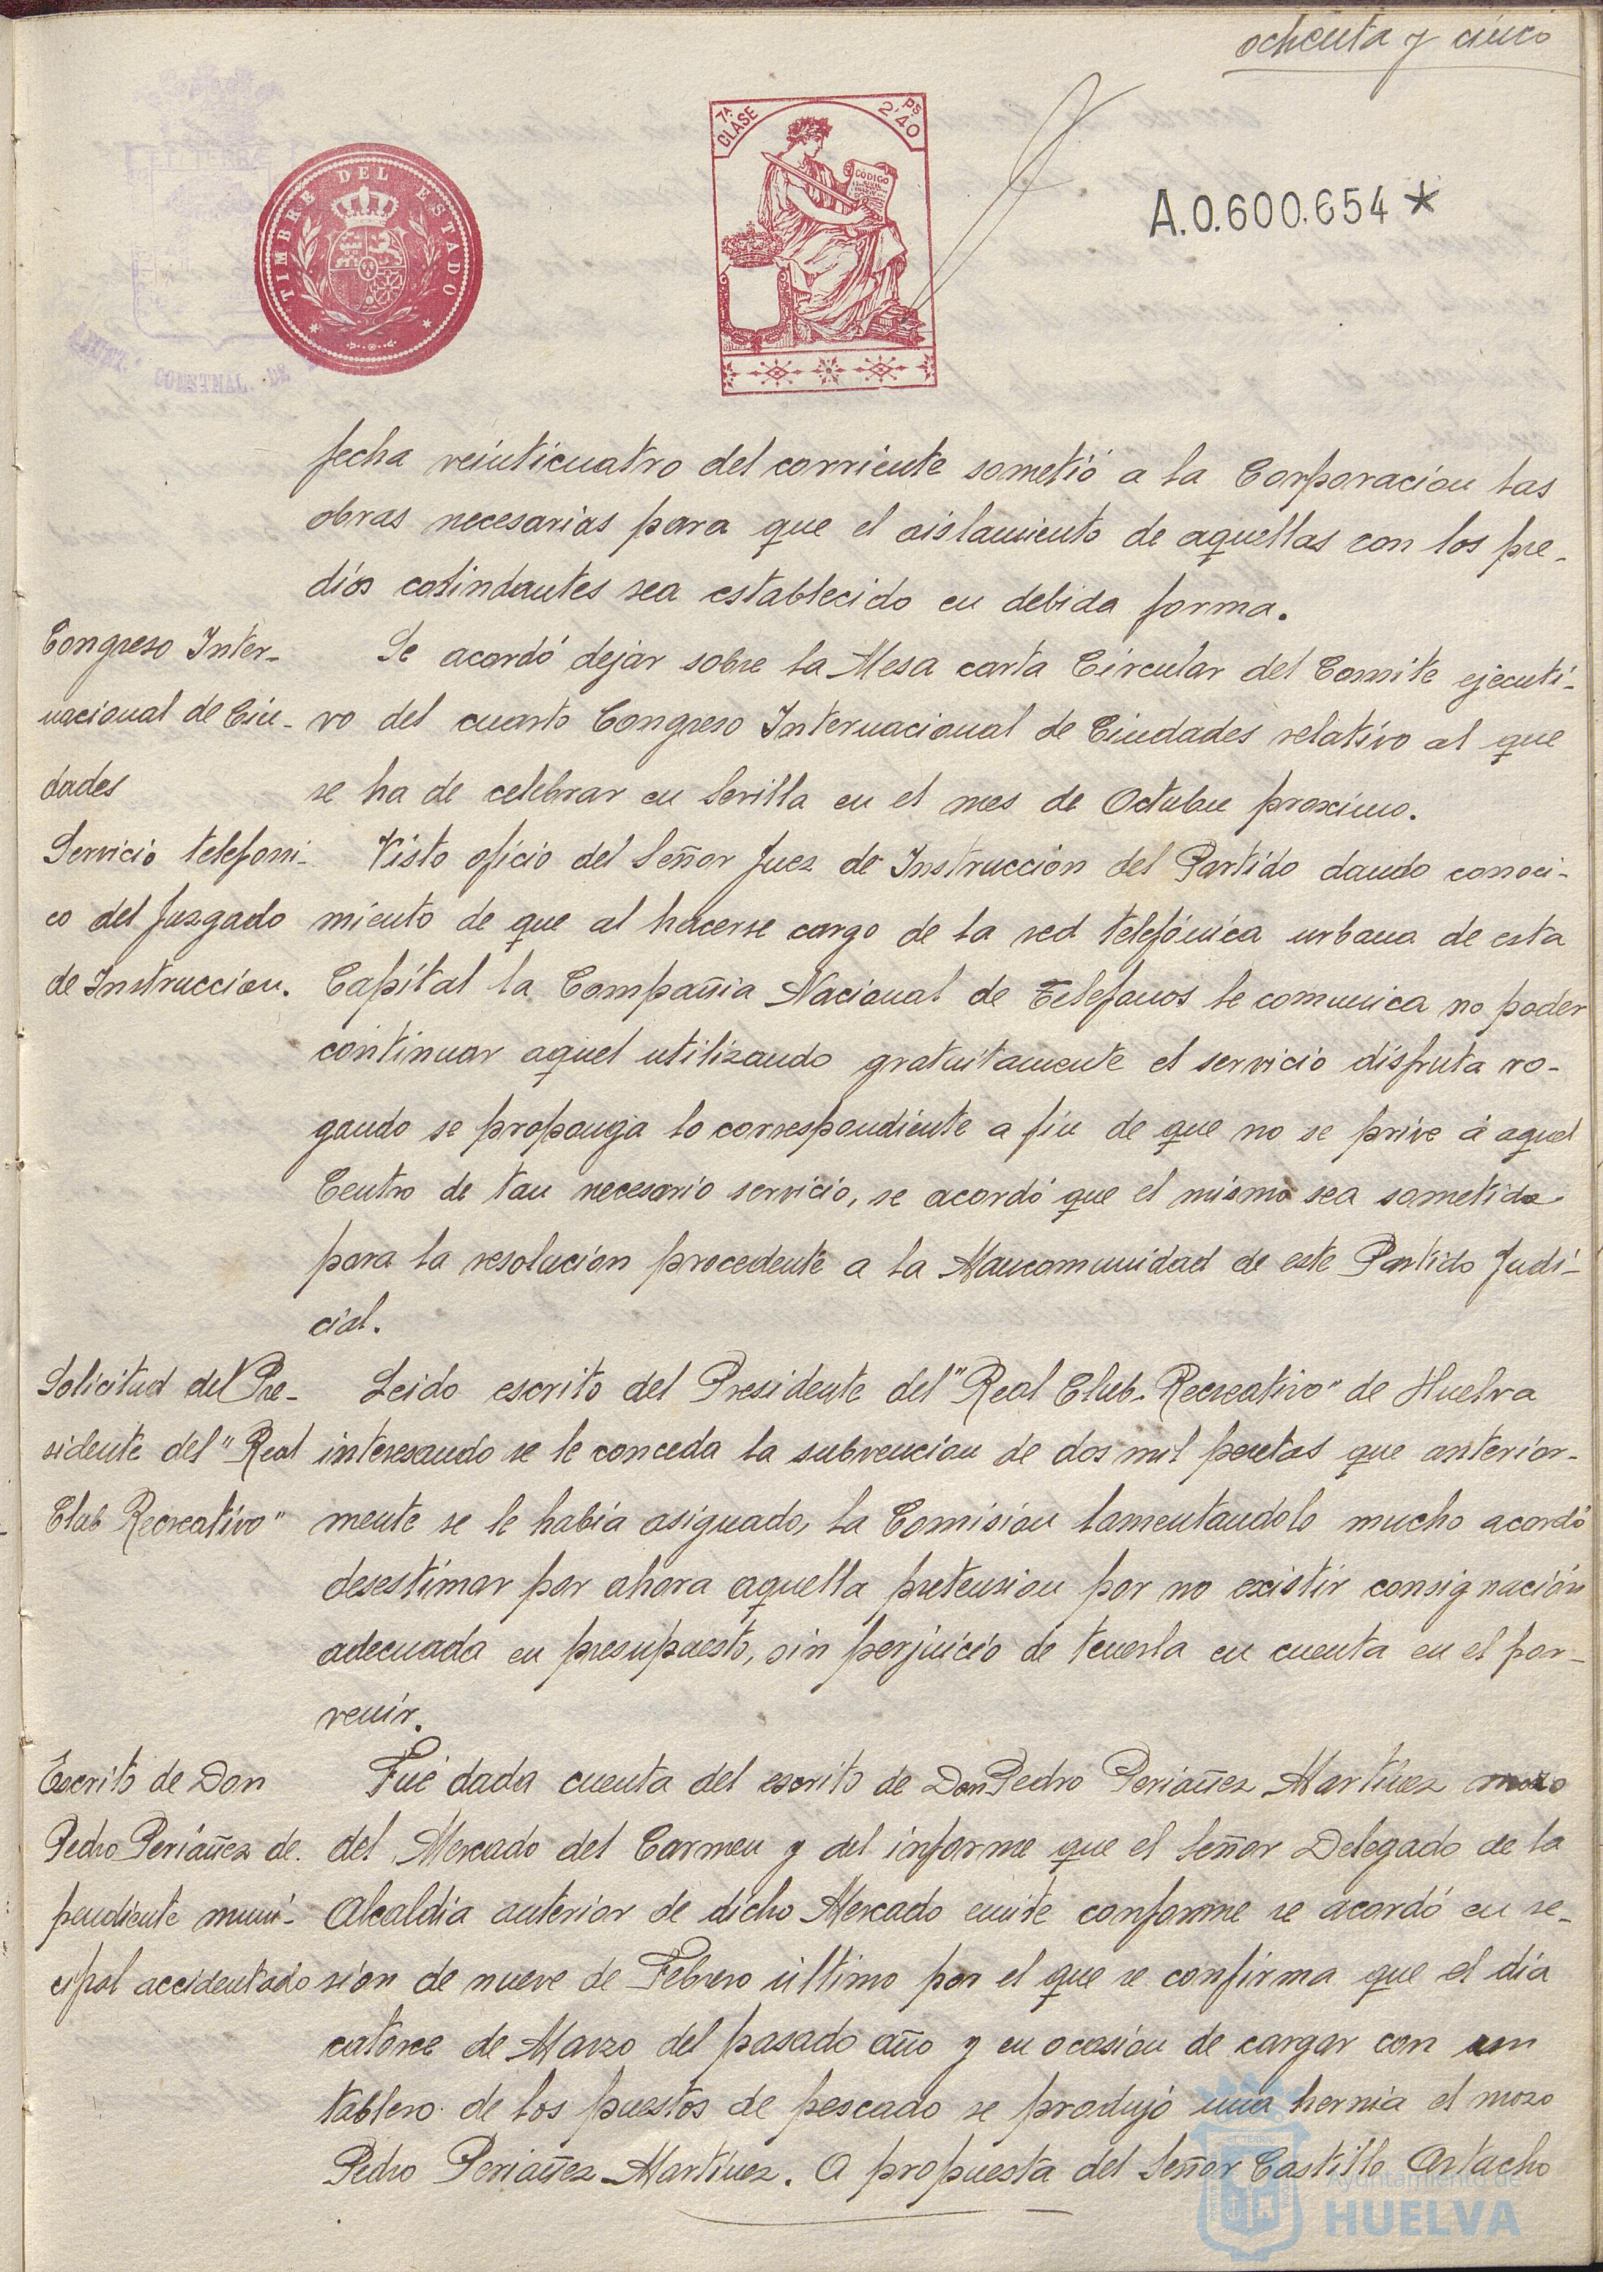 ochenta y cinco
TIMBRE DEL ESTADO
7ª CLASE
2'40 Ps
CODIGO
A.0.600.654 *
CONSTNAL. DE
fecha veinticuatro del corriente sometió a la Corporacion las
obras necesarias para que el aislamiento de aquellas con los pre-
dios colindantes sea establecido en debida forma.
Congreso Inter-
nacional de Ciu-
dades
Se acordó dejar sobre la Mesa carta Circular del Comite ejecuti-
vo del cuarto Congreso Internacional de Ciudades relativo al que
se ha de celebrar en Sevilla en el mes de Octubre proximo.
Servicio telefoni-
co del Juzgado
de Instruccion.
Visto oficio del Señor Juez de Instrucción del Partido dando conoci-
miento de que al hacerse cargo de la red telefónica urbana de esta
Capital la Compañia Nacional de Telefonos le comunica no poder
continuar aquel utilizando gratuitamente el servicio disfruta ro-
gando se proponga lo correspondiente a fin de que no se prive á aquel
Centro de tan necesario servicio, se acordó que el mismo sea sometido
para la resolucion procedente a la Mancomunidad de este Partido Judi-
cial.
Solicitud del Pre-
sidente del "Real
Club Recreativo"
Leido escrito del Presidente del "Real Club-Recreativo" de Huelva
interesando se le conceda la subvencion de dos mil pesetas que anterior-
mente se le habia asignado, la Comision lamentandolo mucho acordó
desestimar por ahora aquella pretension por no existir consignación
adecuada en presupuesto, sin perjuicio de tenerla en cuenta en el por-
venir.
Escrito de Don
Pedro Periáñez de-
pendiente muni-
cipal accidentado
Fué dada cuenta del escrito de Don Pedro Periañez Martinez mozo
del Mercado del Carmen y del informe que el Señor Delegado de la
Alcaldia anterior de dicho Mercado emite conforme se acordó en se-
sion de nueve de Febrero último por el que se confirma que el dia
catorce de Marzo del pasado año y en ocasion de cargar con un
tablero de los puestos de pescado se produjó una hernia el mozo
Pedro Periañez Martinez. A propuesta del Señor Castillo Artacho
Ayuntamiento de
HUELVA